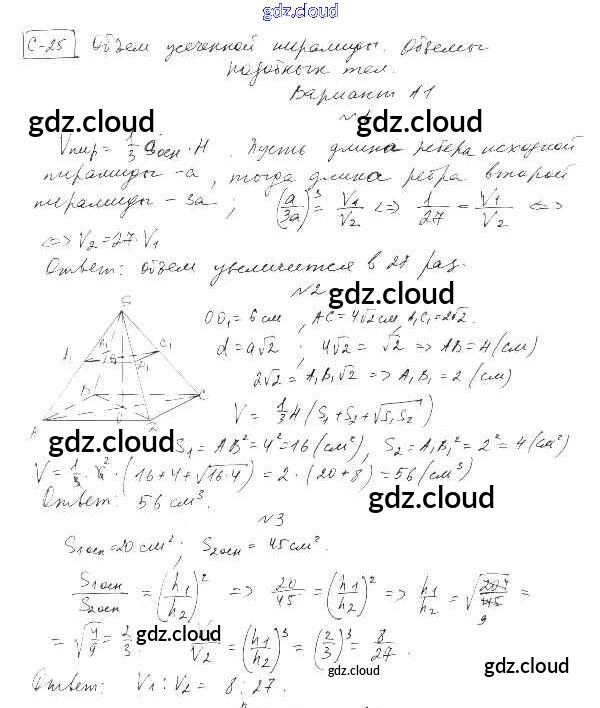 gdz.cloud
С-25 Объем усеченной пирамиды. Объемы
подобных тел.
Вариант А1
№1
gdz.cloud gdz.cloud
Vпир = 1/3 Sосн · H. Пусть длина ребра исходной
пирамиды - a, тогда длина ребра второй
пирамиды - 3a; (a/3a)³ = V₁/V₂ <=> 1/27 = V₁/V₂ <=>
<=> V₂ = 27·V₁
Ответ: объем увеличится в 27 раз.
№2
gdz.cloud
S
A₁ B₁ C₁ O₁ D₁
A B C O D
OO₁ = 6 см, AC = 4√2 см A₁C₁ = 2√2.
d = a√2; 4√2 = √2 => AB = 4 (см)
2√2 = A₁B₁√2 => A₁B₁ = 2 (см)
V = 1/3 H (S₁ + S₂ + √S₁S₂)
gdz.cloud gdz.cloud
S₁ = AB² = 4² = 16 (см²), S₂ = A₁B₁² = 2² = 4 (см²)
V = 1/3 · 6² · (16 + 4 + √16·4) = 2 · (20 + 8) = 56 (см³)
Ответ: 56 см³.
gdz.cloud
№3
S1осн = 20 см²; S2осн = 45 см².
S1осн/S2осн = (h₁/h₂)² => 20/45 = (h₁/h₂)² => h₁/h₂ = √20 4/45 9 =
= √4/9 = 2/3. V₂ = (h₁/h₂)³ = (2/3)³ = 8/27.
gdz.cloud
gdz.cloud gdz.cloud
Ответ: V₁ : V₂ = 8 : 27.